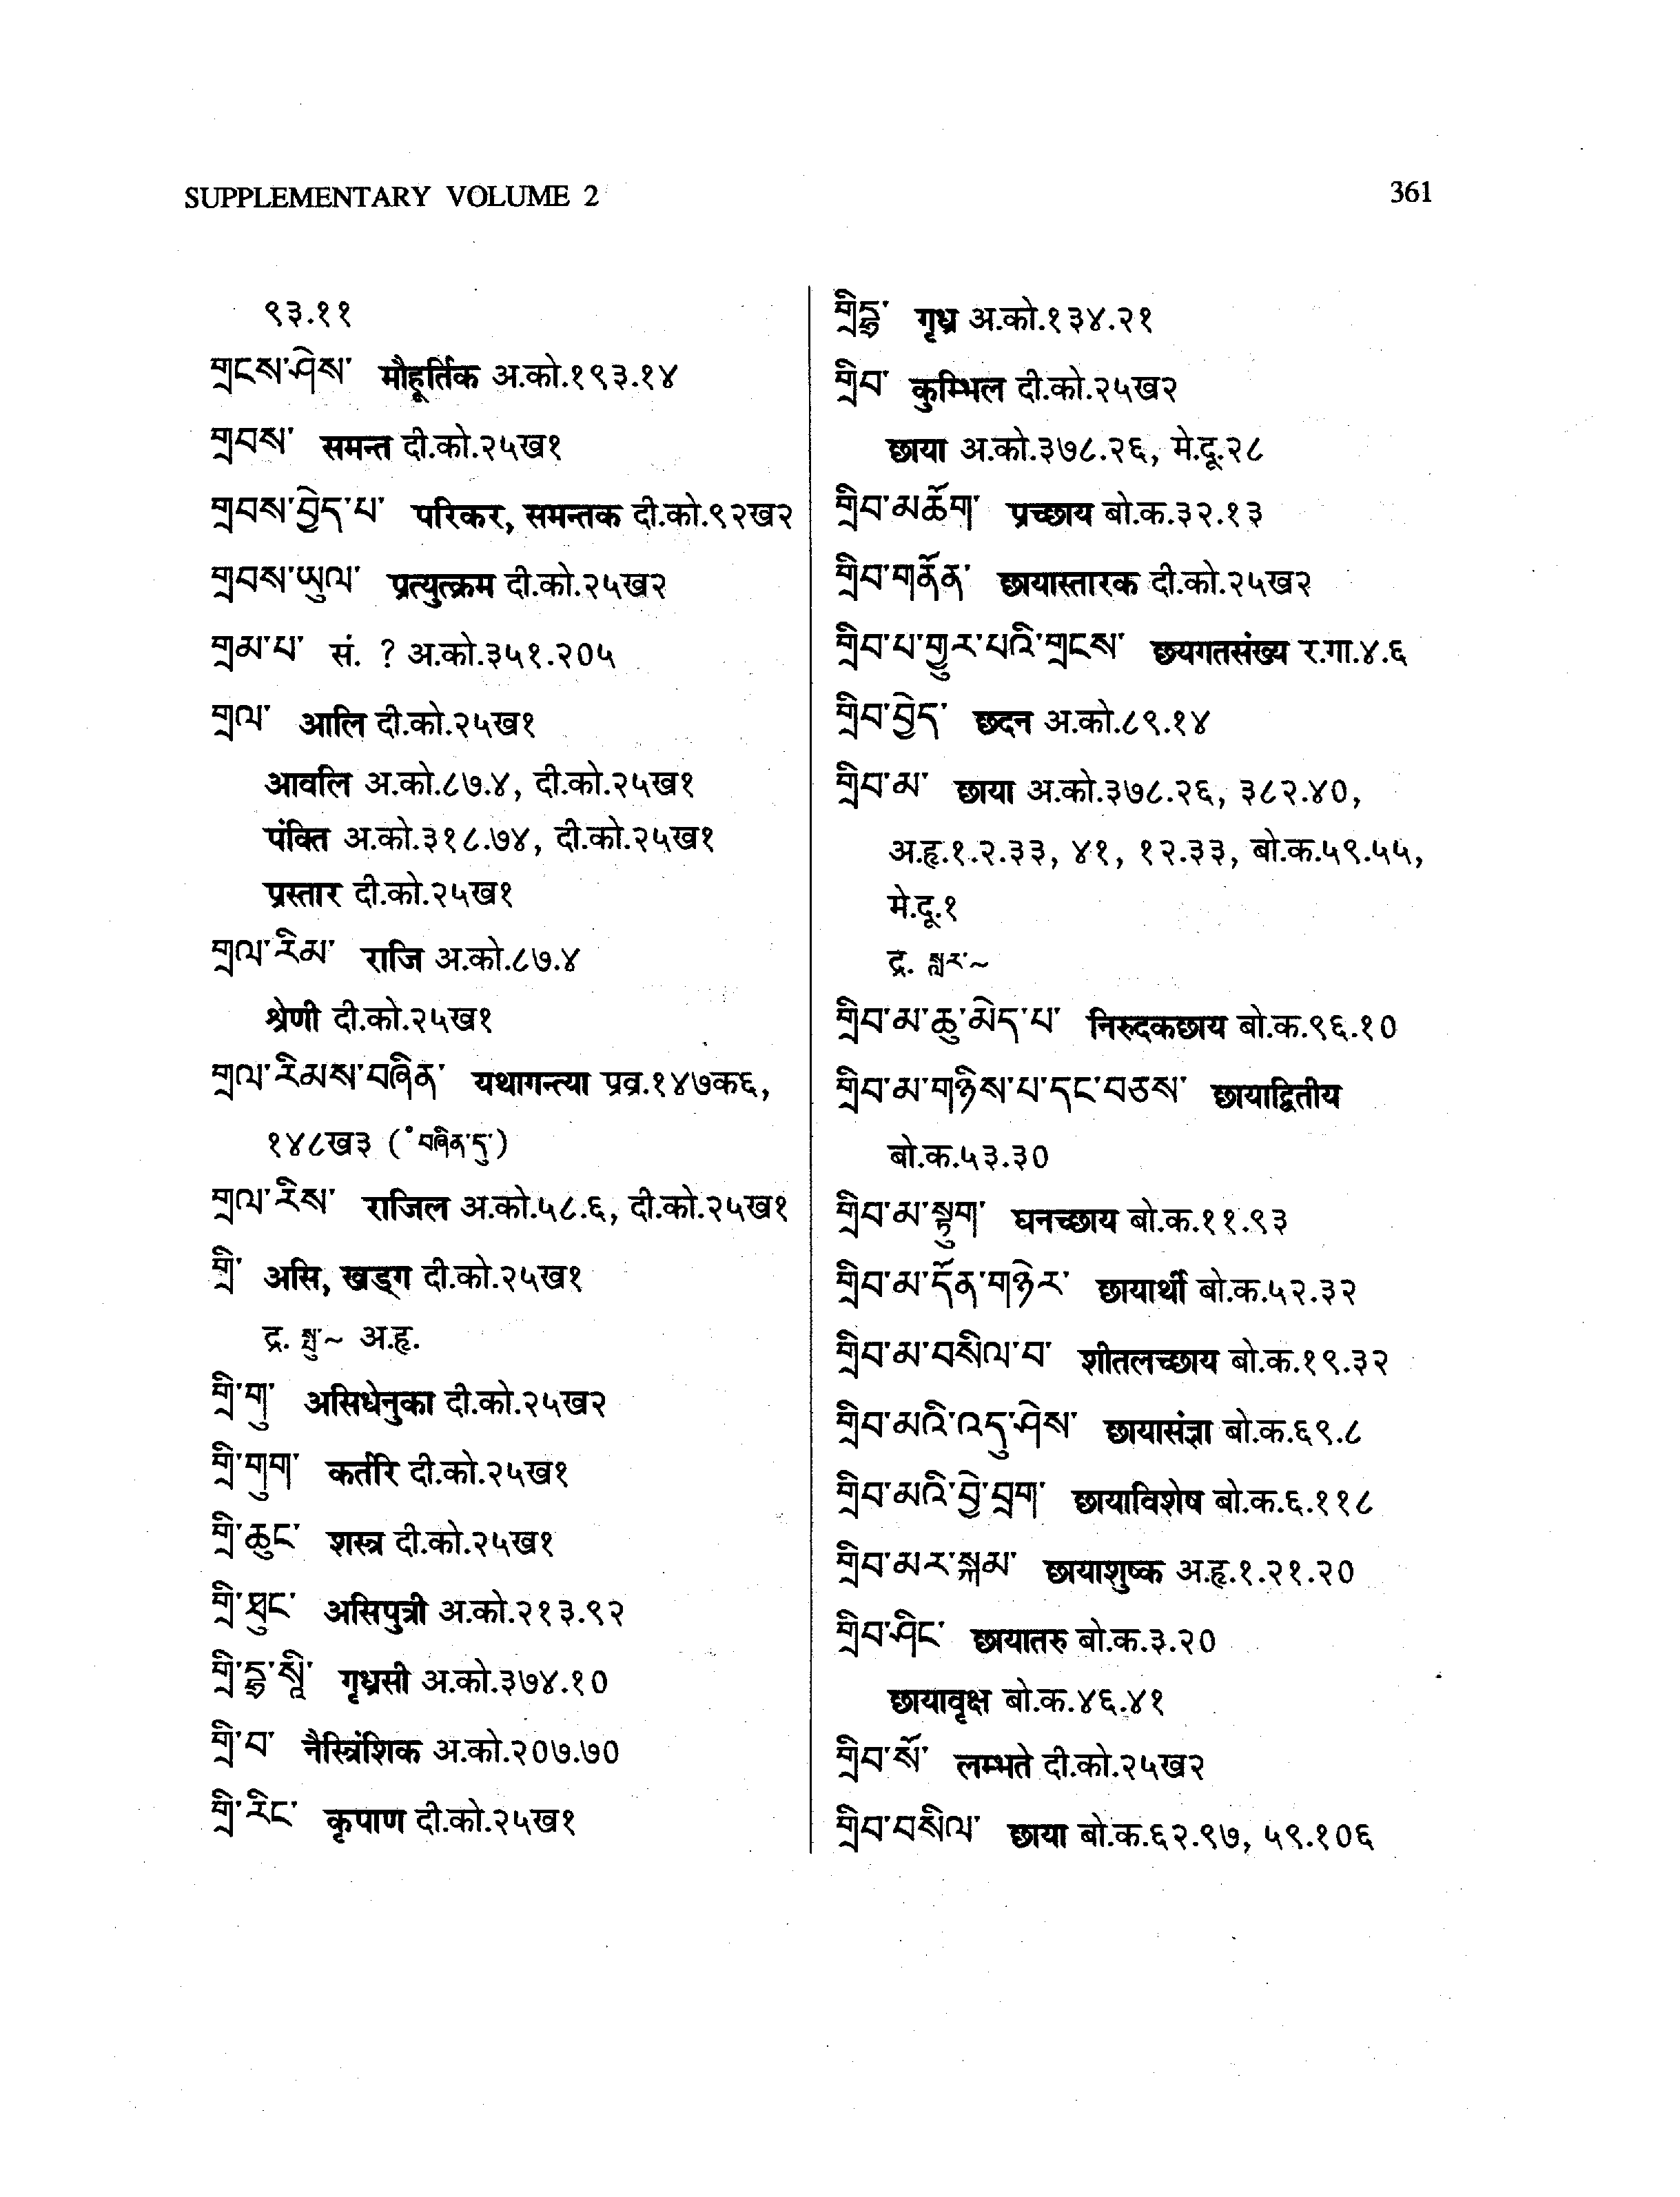 SUPPLEMENTARY VOLUME 2
361
९३.११
གྲངས་ཤེས་ मौहूर्तिक अ.को.१९३.१४
གྲབས་ समन्त दी.को.२५ख१
གྲབས་བྱེད་པ་ परिकर, समन्तक दी.को.९२ख२
གྲབས་ཡུལ་ प्रत्युत्क्रम दी.को.२५ख२
གྲམ་པ་ सं. ? अ.को.३५१.२०५
གྲལ་ आलि दी.को.२५ख१
आवलि अ.को.८७.४, दी.को.२५ख१
पंक्ति अ.को.३१८.७४, दी.को.२५ख१
प्रस्तार दी.को.२५ख१
གྲལ་རིམ་ राजि अ.को.८७.४
श्रेणी दी.को.२५ख१
གྲལ་རིམས་བཞིན་ यथागन्त्या प्रव्र.१४७क६,
१४८ख३ (༠བཞིན་དུ་)
གྲལ་རིས་ राजिल अ.को.५८.६, दी.को.२५ख१
གྲི་ असि, खड्ग दी.को.२५ख१
द्र. སྤུ་~ अ.हृ.
གྲི་གུ་ असिधेनुका दी.को.२५ख२
གྲི་གུག་ कर्तरि दी.को.२५ख१
གྲི་ཆུང་ शस्त्र दी.को.२५ख१
གྲི་ཐུང་ असिपुत्री अ.को.२१३.९२
གྲི་དྷྲ་སཱི་ गृध्रसी अ.को.३७४.१०
གྲི་བ་ नैस्त्रिंशिक अ.को.२०७.७०
གྲི་རིང་ कृपाण दी.को.२५ख१
གྲིདྷྲ་ गृध्र अ.को.१३४.२१
གྲིབ་ कुम्भिल दी.को.२५ख२
छाया अ.को.३७८.२६, मे.दू.२८
གྲིབ་མཆོག་ प्रच्छाय बो.क.३२.१३
གྲིབ་གནོན་ छायास्तारक दी.को.२५ख२
གྲིབ་པ་གྱུར་པའི་གྲངས་ छयगतसंख्य र.गा.४.६
གྲིབ་བྱེད་ छदन अ.को.८९.१४
གྲིབ་མ་ छाया अ.को.३७८.२६, ३८२.४०,
अ.हृ.१.२.३३, ४१, १२.३३, बो.क.५९.५५,
मे.दू.१
द्र. སླར་~
གྲིབ་མ་ཆུ་མེད་པ་ निरुदकछाय बो.क.९६.१०
གྲིབ་མ་གཉིས་པ་དང་བཅས་ छायाद्वितीय
बो.क.५३.३०
གྲིབ་མ་སྟུག་ घनच्छाय बो.क.११.९३
གྲིབ་མ་དོན་གཉེར་ छायार्थी बो.क.५२.३२
གྲིབ་མ་བསིལ་བ་ शीतलच्छाय बो.क.१९.३२
གྲིབ་མའི་འདུ་ཤེས་ छायासंज्ञा बो.क.६९.८
གྲིབ་མའི་བྱེ་བྲག་ छायाविशेष बो.क.६.११८
གྲིབ་མར་སྐམ་ छायाशुष्क अ.हृ.१.२१.२०
གྲིབ་ཤིང་ छायातरु बो.क.३.२०
छायावृक्ष बो.क.४६.४१
གྲིབ་སོ་ लम्भते दी.को.२५ख२
གྲིབ་བསིལ་ छाया बो.क.६२.९७, ५९.१०६